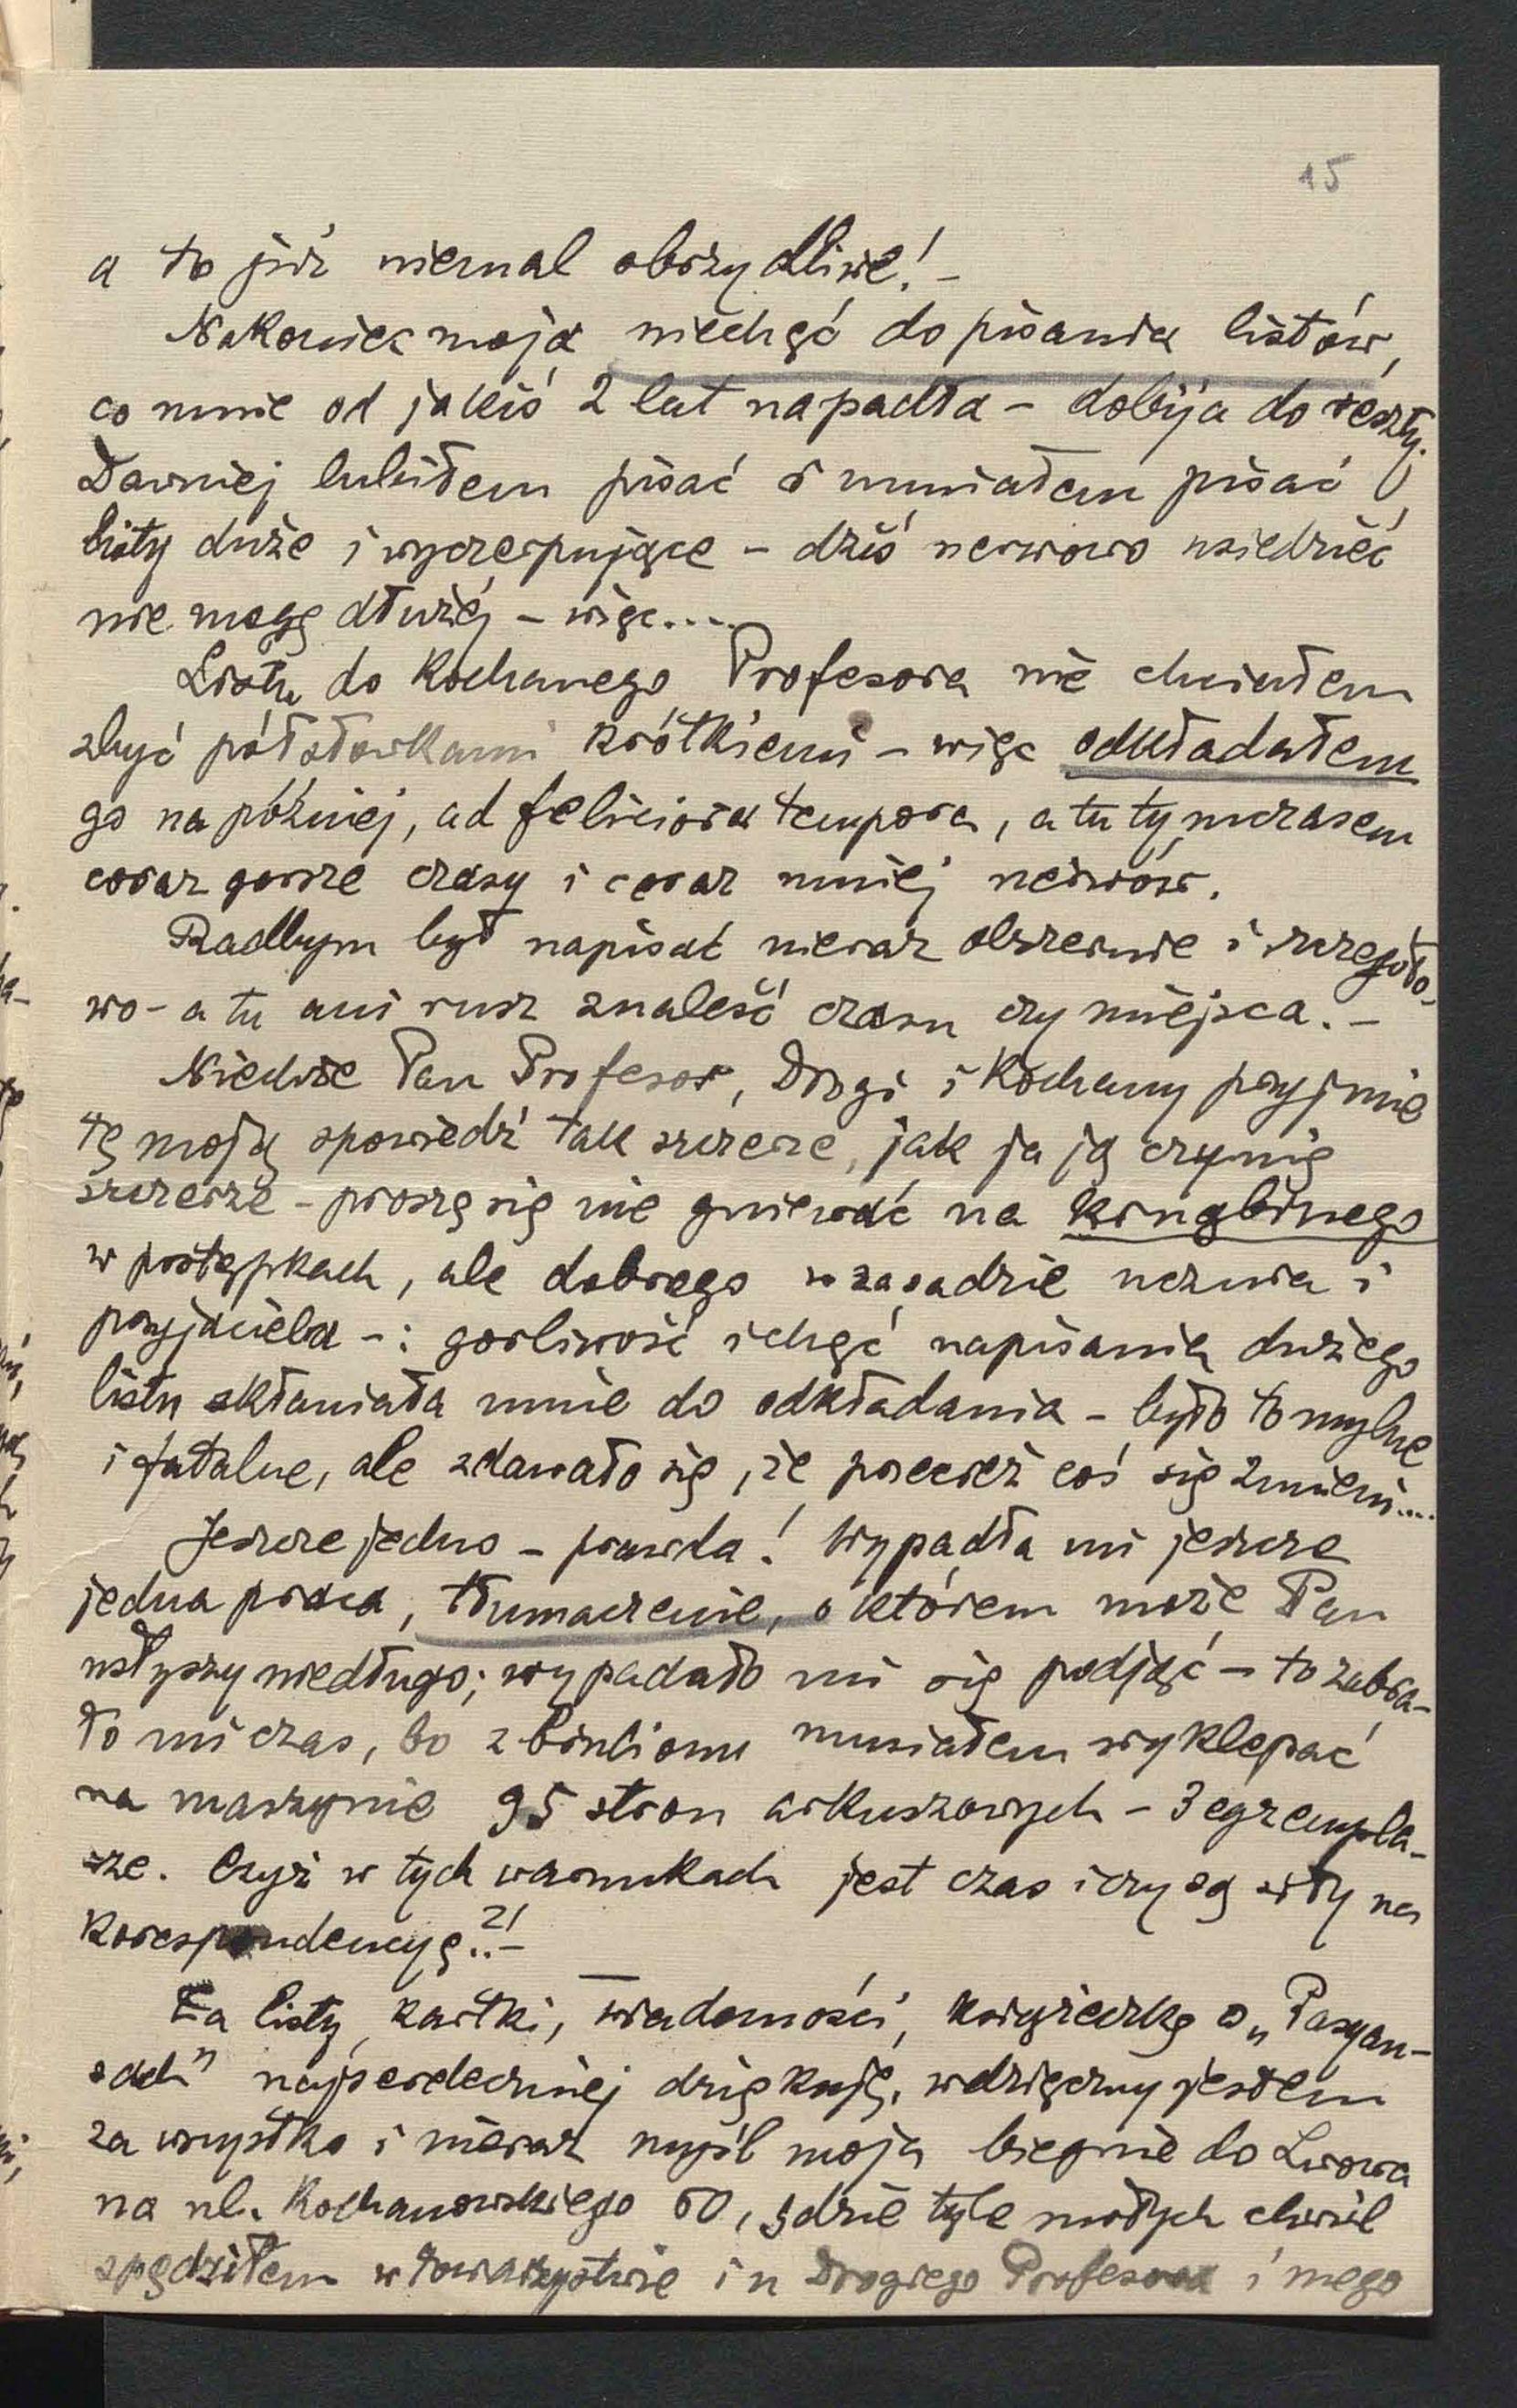 15
a to już niemal obrzydliwe! –
Nakoniec moja niechęć do pisania listów,
co mnie od jakiś 2 lat napadła – dobija do reszty.
Dawniej lubiłem pisać i umiałem pisać
listy duże i wyczerpujące – dziś nerwowo usiedzieć
nie mogę dłużéj – więc....
Listu do Kochanego Profesora nie chciałem
zbyć półsłówkami krótkiemi – więc odkładałem
go na później, ad feliciora tempora, a tu tymczasem
coraz gorsze czasy i coraz mniej nerwów.
Radbym był napisać nieraz obszernie i szczegóło-
wo – a tu ani rusz znaleść czasu czy miejsca. –
Niechże Pan Profesor, Drogi i Kochany przyjmie
tę moją spowiedź tak szczerze, jak ja ją czynię
szczerze – proszę się nie gniewać na krnąbrnego
w postępkach, ale dobrego w zasadzie ucznia i
przyjaciela –: gorliwość i chęć napisania dużego
listu skłaniała mnie do odkładania – było to mylne
i fatalne, ale zdawało się, że przecież coś się zmieni....
Jeszcze jedno – prawda! Wypadła mi jeszcze
jedna praca, tłumaczenie, o którem może Pan
usłyszy niedługo; wypadało mi się podjąć – to zabra-
ło mi czas, bo z brulionu musiałem wyklepać
na maszynie 95 stron arkuszowych – 3 egzempla-
rze. Czyż w tych warunkach jest czas i czy są siły na
korespondencyę..?! –
Za listy, kartki, wiadomości, książeczkę o „Pasyan-
sach" najserdeczniej dziękuję, wdzięczny jestem
za wszystko i nieraz myśl moja biegnie do Lwowa
na ul. Kochanowskiego 60, gdzie tyle miłych chwil
spędziłem w towarzystwie i u Drogiego Profesora i mego